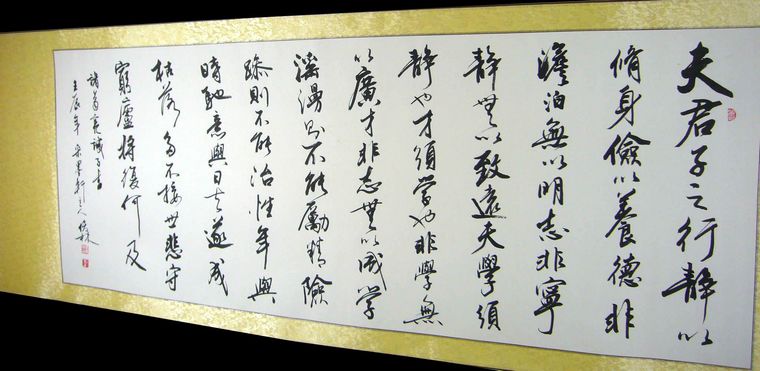 夫君子之行静以
脩身儉以養德非
澹泊無以明志非寧
静無以致遠夫學須
静也才須學也非學無
以廣才非志無以成学
滛漫則不能勵精險
躁則不能治性年與
時馳意與日去遂成
枯落多不接世悲守
窮廬將復何及
諸葛亮誡子書
壬辰年